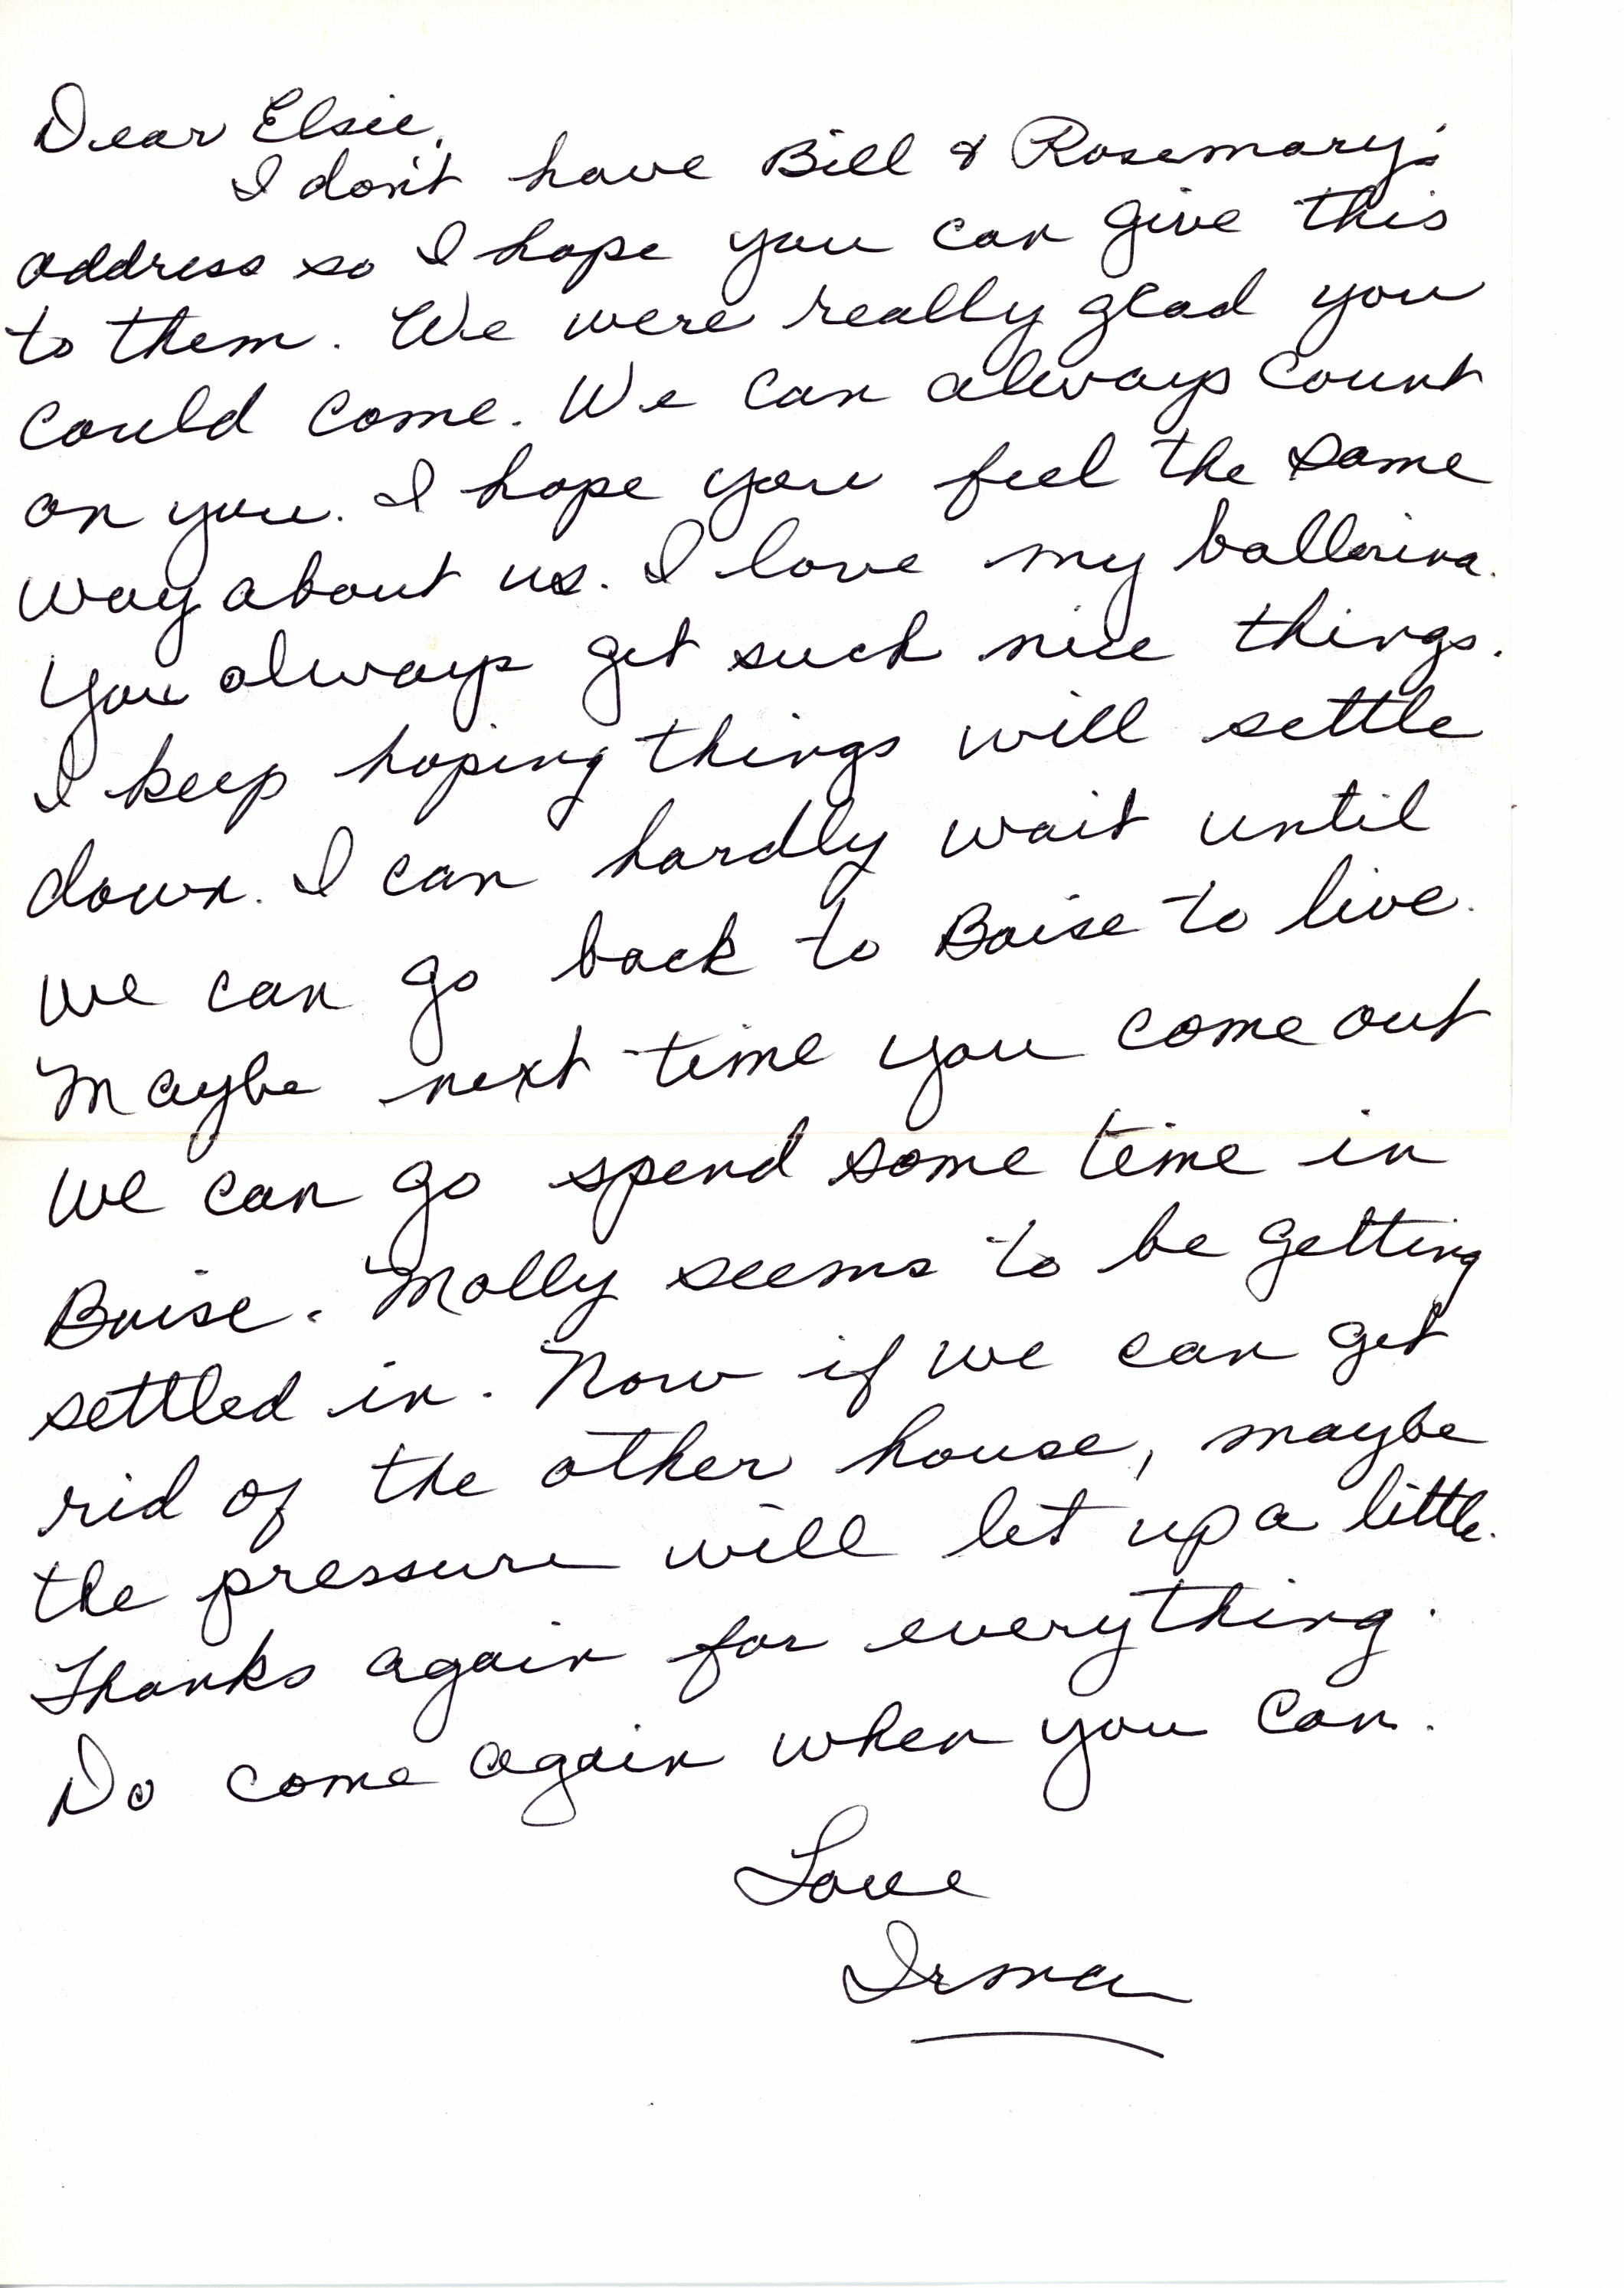 Dear Elsie,
I don't have Bill & Rosemary's
address so I hope you can give this
to them. We were really glad you
could come. We can always count
on you. I hope you feel the same
way about us. I love my ballerina.
You always get such nice things.
I keep hoping things will settle
down. I can hardly wait until
we can go back to Boise to live.
Maybe next time you come out
we can go spend some time in
Boise. Molly seems to be getting
settled in. Now if we can get
rid of the other house, maybe
the pressure will let up a little.
Thanks again for everything.
Do come again when you can.
Love
Irma